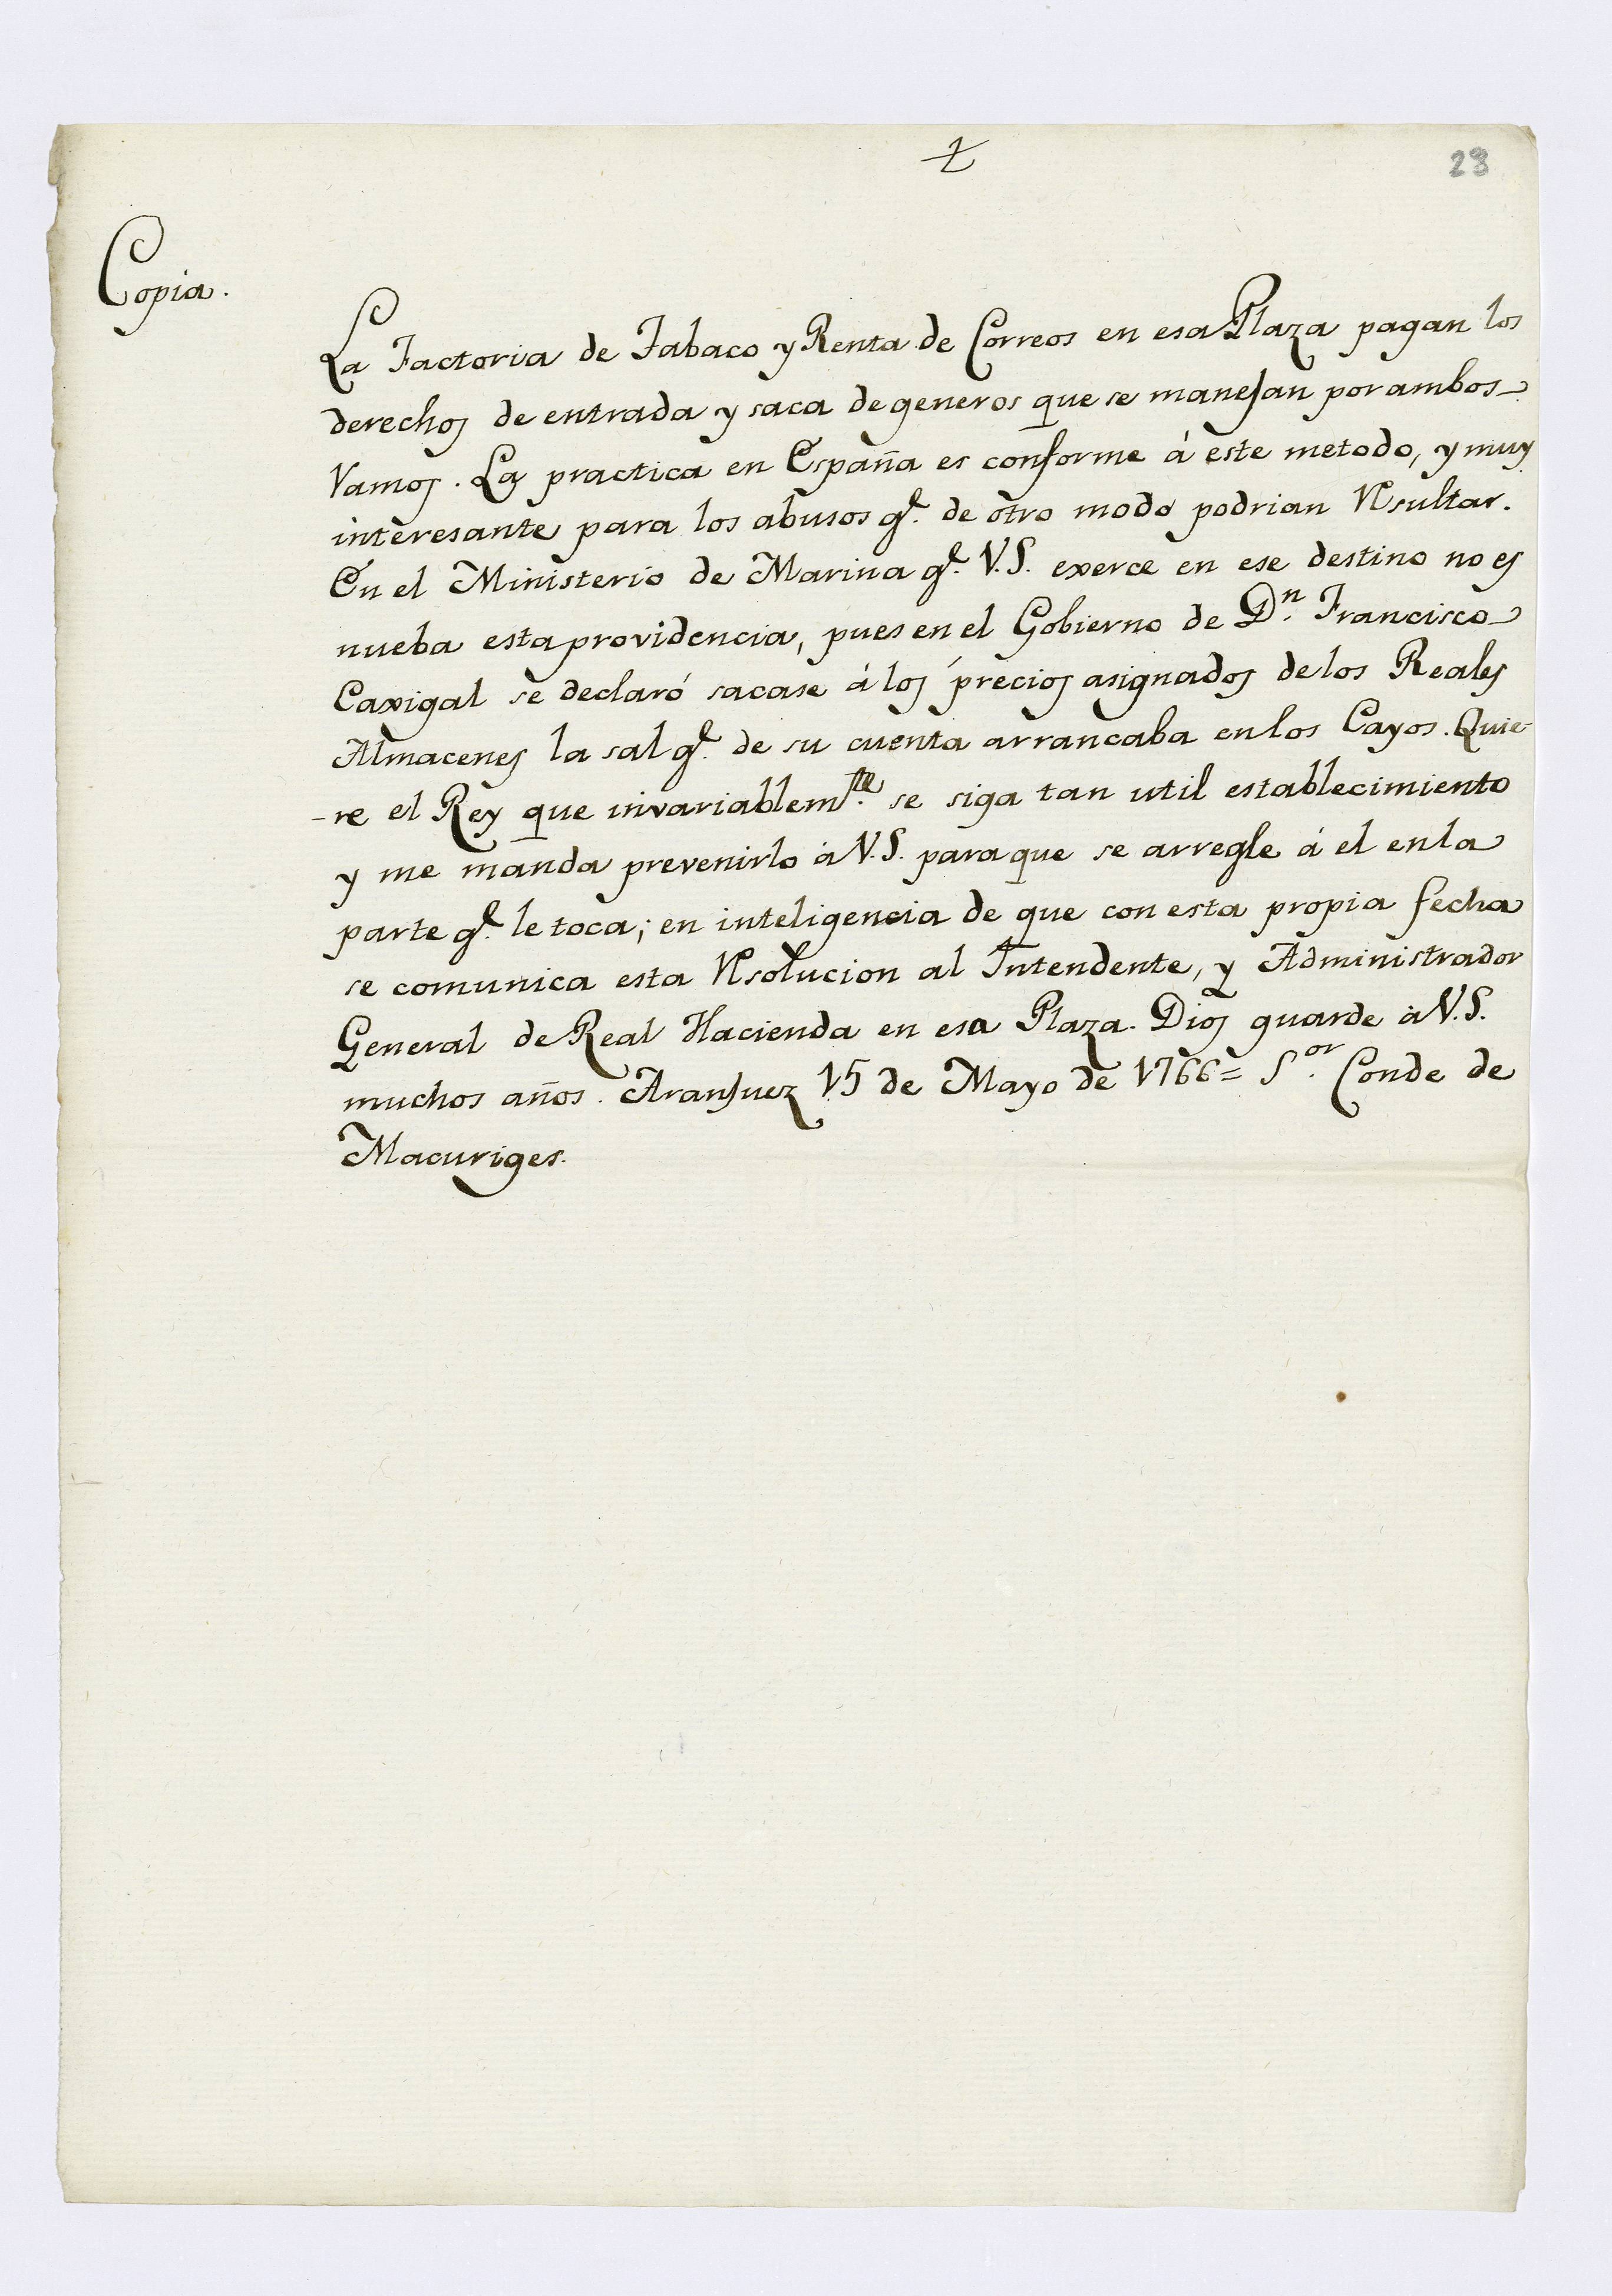 28
Copia.
La Factoria de Tabaco y Renta de Correos en esa Plaza pagan los
derechos de entrada y saca de generos que se manejan por ambos
Ramos. La practica en España es conforme á este metodo, y muy
interesante para los abusos q.e de otro modo podrian Resultar.
En el Ministerio de Marina q.e V.S. exerce en ese destino no es
nueba esta providencia, pues en el Gobierno de D.n Francisco
Caxigal se declaró sacase á los precios asignados de los Reales
Almacenes la sal q.e de su cuenta arrancaba en los Cayos. Quie-
-re el Rey que invariablem.te se siga tan util establecimiento
y me manda prevenirlo à V.S. para que se arregle á el en la
parte q.e le toca; en inteligencia de que con esta propia fecha
se comunica esta Resolucion al Intendente, y Administrador
General de Real Hacienda en esa Plaza. Dios guarde à V.S.
muchos años. Aranjuez 15 de Mayo de 1766= S.or Conde de
Macuriges.